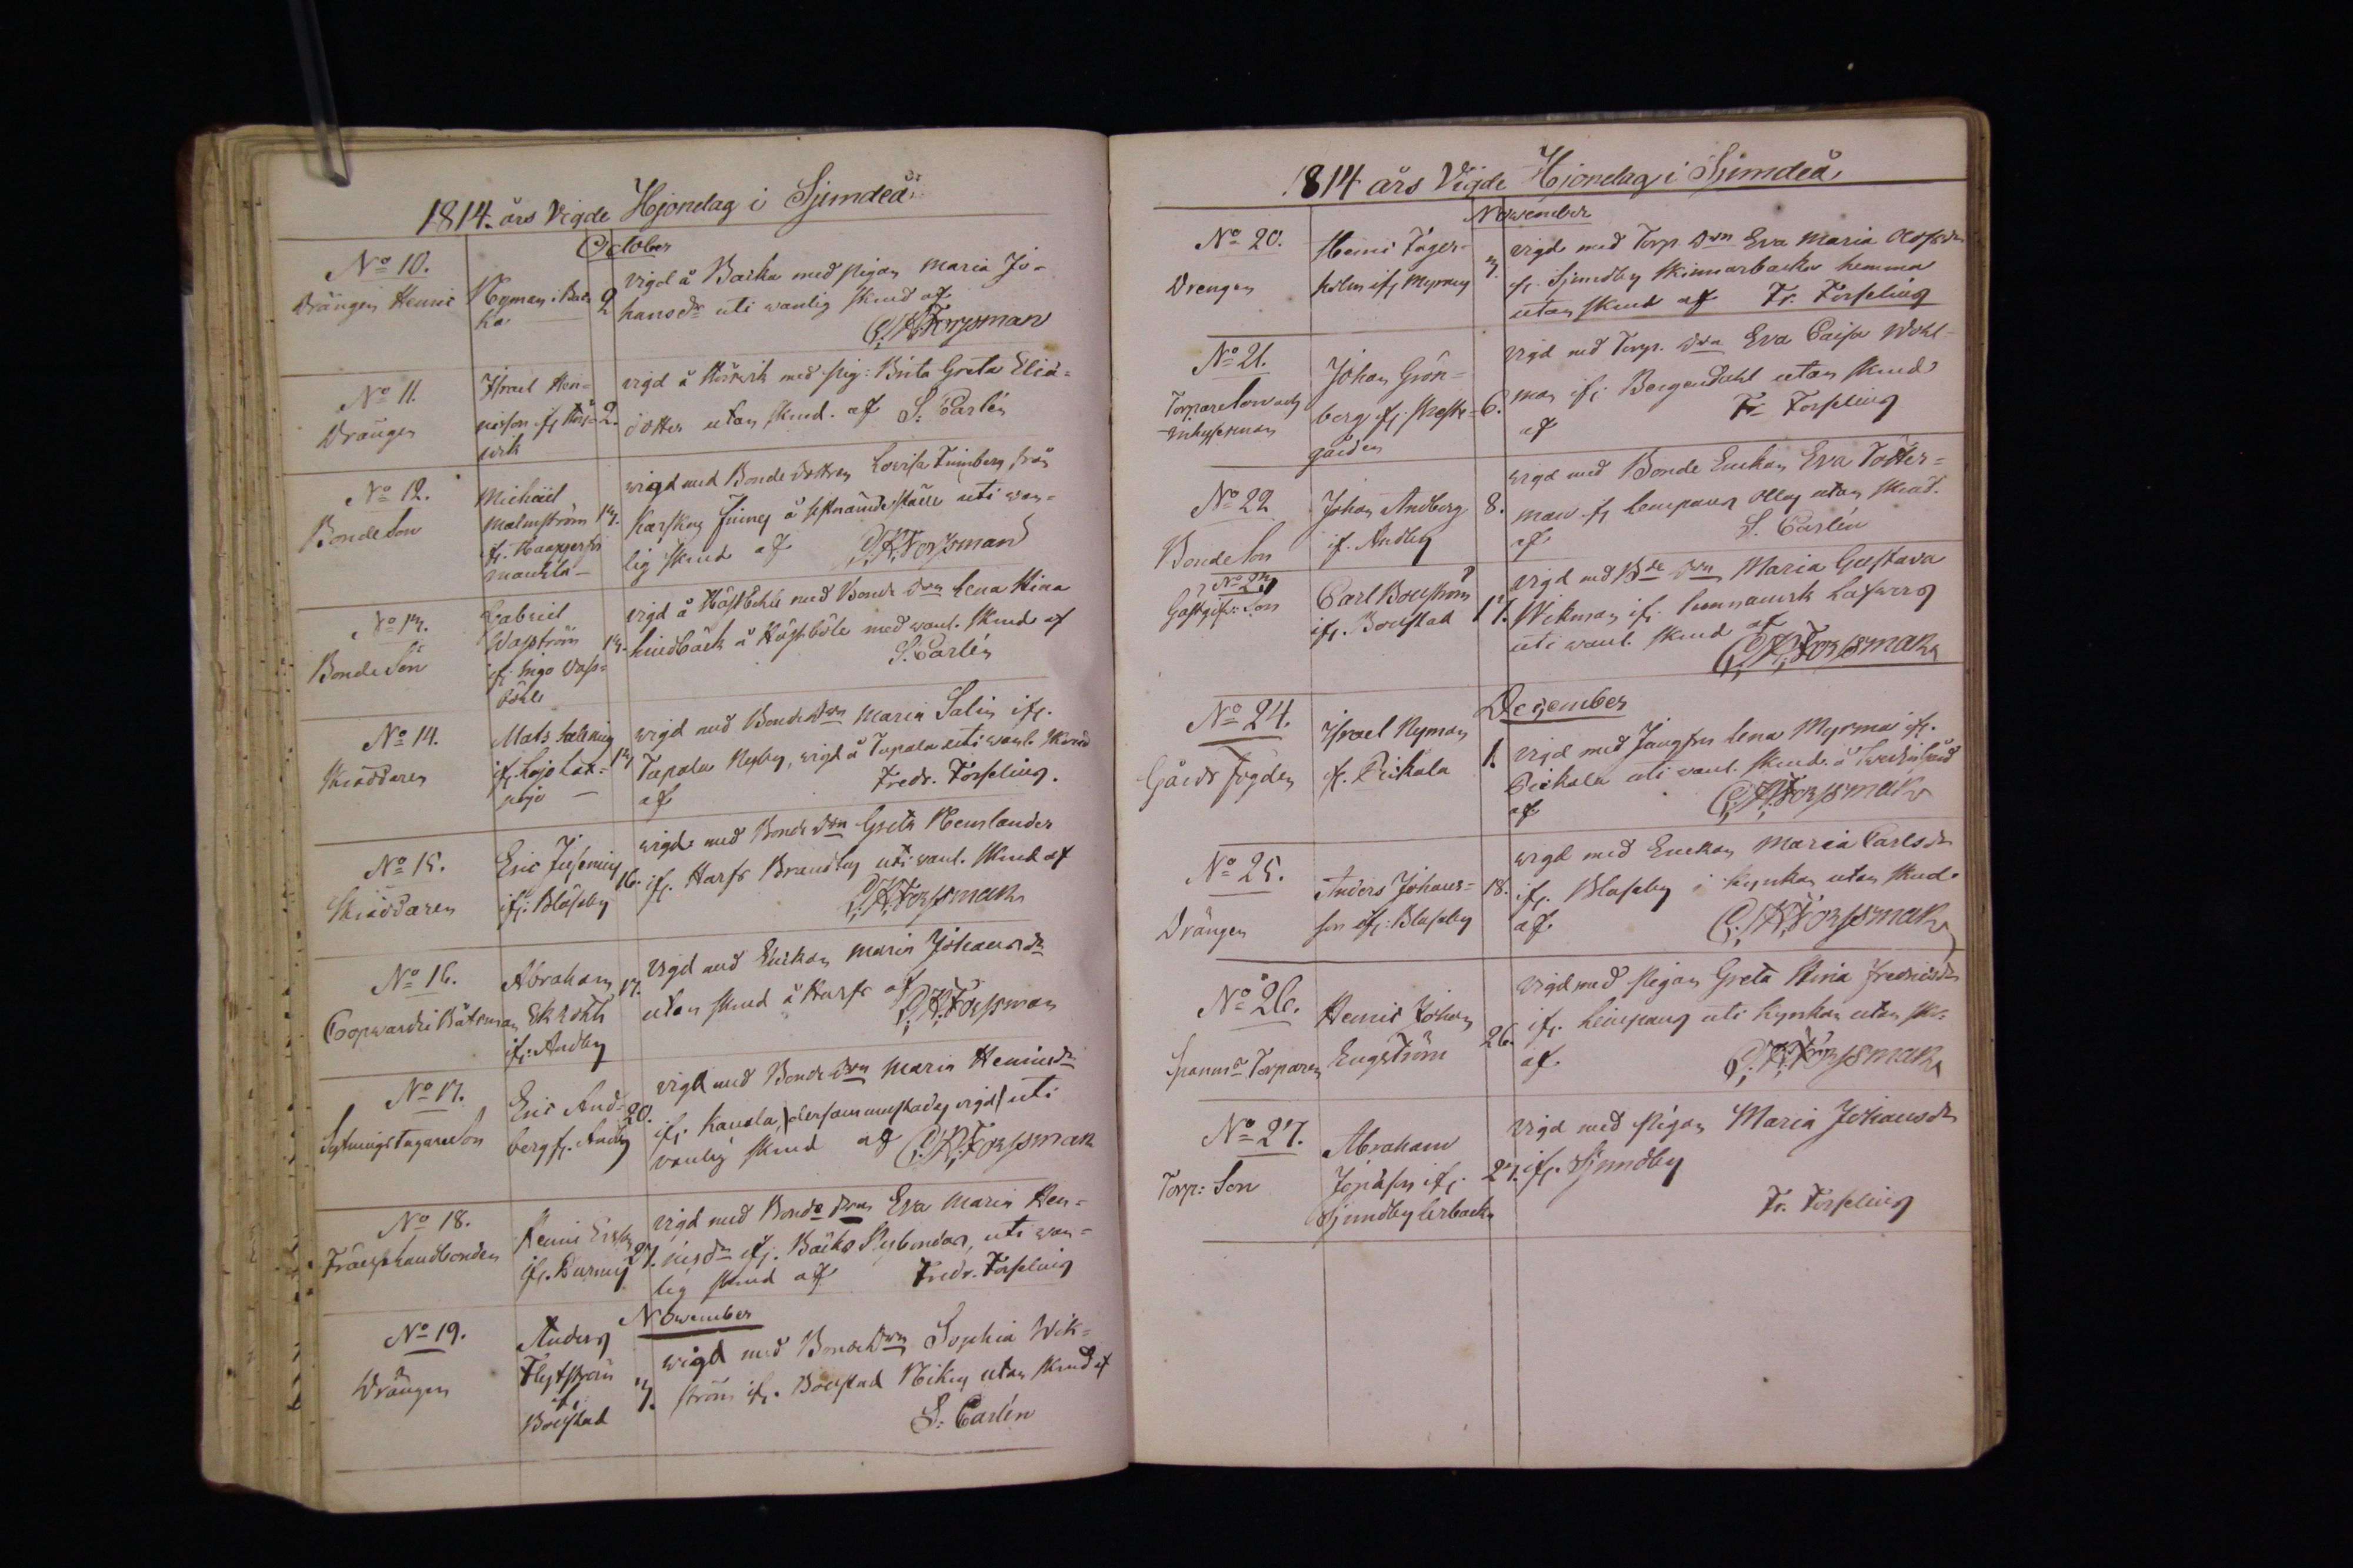 1814. års Vigde Hjonelag i Sjundeå
October
No 10.
Drängen Henric
Nyman i Bac-
ka
2
vigd å Backa med pigan Maria Jo-
hansdr uti vanlig skrud af
C: K: Forssman
No 11.
Drängen
Israel Hen-
2.
vigd å med pig: Brita Greta Elia-
dotter utan skrud. af S: Carlén
No 12.
Bonde Son
Michaël
Malmström
wigd med Bonde dottren Lovisa från
å sistnämde ställe uti wan-
lig skrud af C: K: Forssman
No 13.
Bonde Son
Gabriel
Wasström
if: Ingo
vigd å med Bonde Drn Lena Stina
Lindbäck å med vanl. skrud af
S. Carlén
No 14.
Skräddaren
Mats
if. Lojo
wigd med Bonde Drn Maria Salin if.
Tupala Nyby, vigd å Tupala uti vanl. skrud
af Fredr. Forselius.
No 15.
Skräddaren
Eric
if: Blåsaby
16.
wigd med Bonde Drn Greta
if. Harfs Brandby uti vanl. skrud af
C: K: Forssman
No 16.
Coopwardie Båtsman
Abraham
if: Andby
17.
vigd med Enckan Maria Johansdr
utan skrud å Harfs af
C: K: Forssman
No 17.
Sytningstagare Son
Eric And-
berg if. Andby
20.
vigd med Bonde Drn Maria Henricsdr
if. Kansla, dersammastädes vigd uti
vanlig skrud af C: K: Forssman
No 18.
Henric
if.
27.
vigd med Bonde Drn Eva Maria Hen-
ricsdr if: Bäcks uti van-
lig skrud af Fredr. Forselius
November
No 19.
Drängen
Anders
Flytström
if
Bollstad
wigd med Bonde Drn Sophia Wik-
ström if. Bollstad utan skrud af
S: Carlén
1814 års Vigde Hjonelag i Sjundeå
November
No 20.
Drengen
Henric Fager-
holm if Myrans
3.
vigd med Torp. Drn Eva Maria
if. Sjundby Skinnarbacka hemma
utan skrud af Fr. Forselius
No 21.
Torpare Son och
Inhysesman
Johan Grön-
berg if:
gården
6.
vigd med Torp. Drn Eva Caisa Wohl-
man if: Bergendahl utan skrud
af Fr Forselius
No 22
Bonde Son
Johan Andberg
if. Andby
8.
wigd med Bonde Enckan Eva Töster-
man if Lempans Olles utan skrud.
af S. Carlén
No 23
Gästgif: Son
Carl Bollström
if. Bollstad
17.
vigd med Bde Drn Maria Gustava
Wikman if.
uti vanl. skrud af
C: K: Forssman
December
No 24.
Gårds fogden
Israel Nyman
if. Pickala
1.
vigd med Jungfru Lena Myrman if.
Pickala uti vanl. skrud å
af C: K: Forssman
No 25.
Drängen
Anders Johans-
son if: Blåsaby
18.
wigd med Enckan Maria Carlsdr
if. Blåsaby i kyrkan utan skrud
af. C: K: Forssman
No 26.
Torparen
Henric Johan
Engström
26.
vigd med pigan Greta Stina Fredricsdr
if. Lempans uti kyrkan utan skr:
af C: K: Forssman
No 27.
Torp: Son
Abraham
Jonasson if.
Sjundby Lerbacka
27.
vigd med pigan Maria Johansdr
if. Sjundby
Fr. Forselius